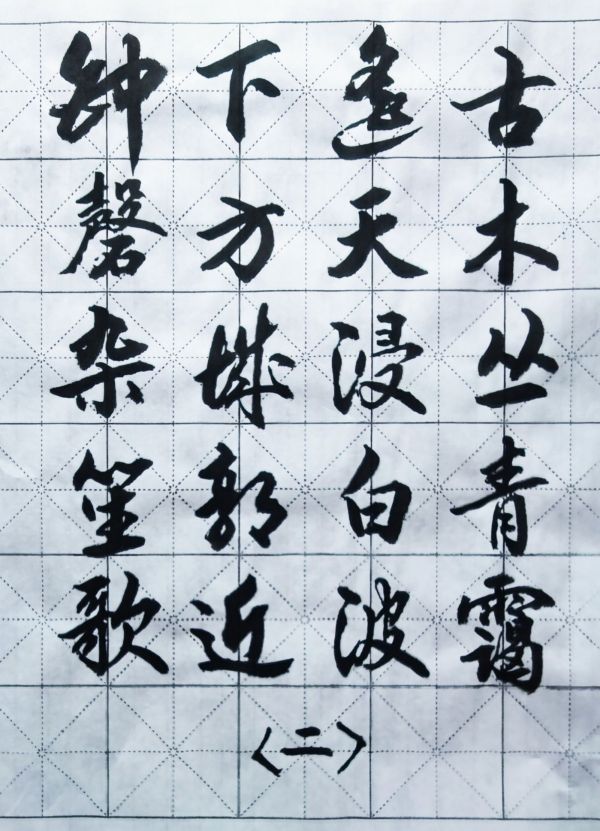 古木丛青霭
遥天浸白波
下方城郭近
钟磬杂笙歌
〈二〉